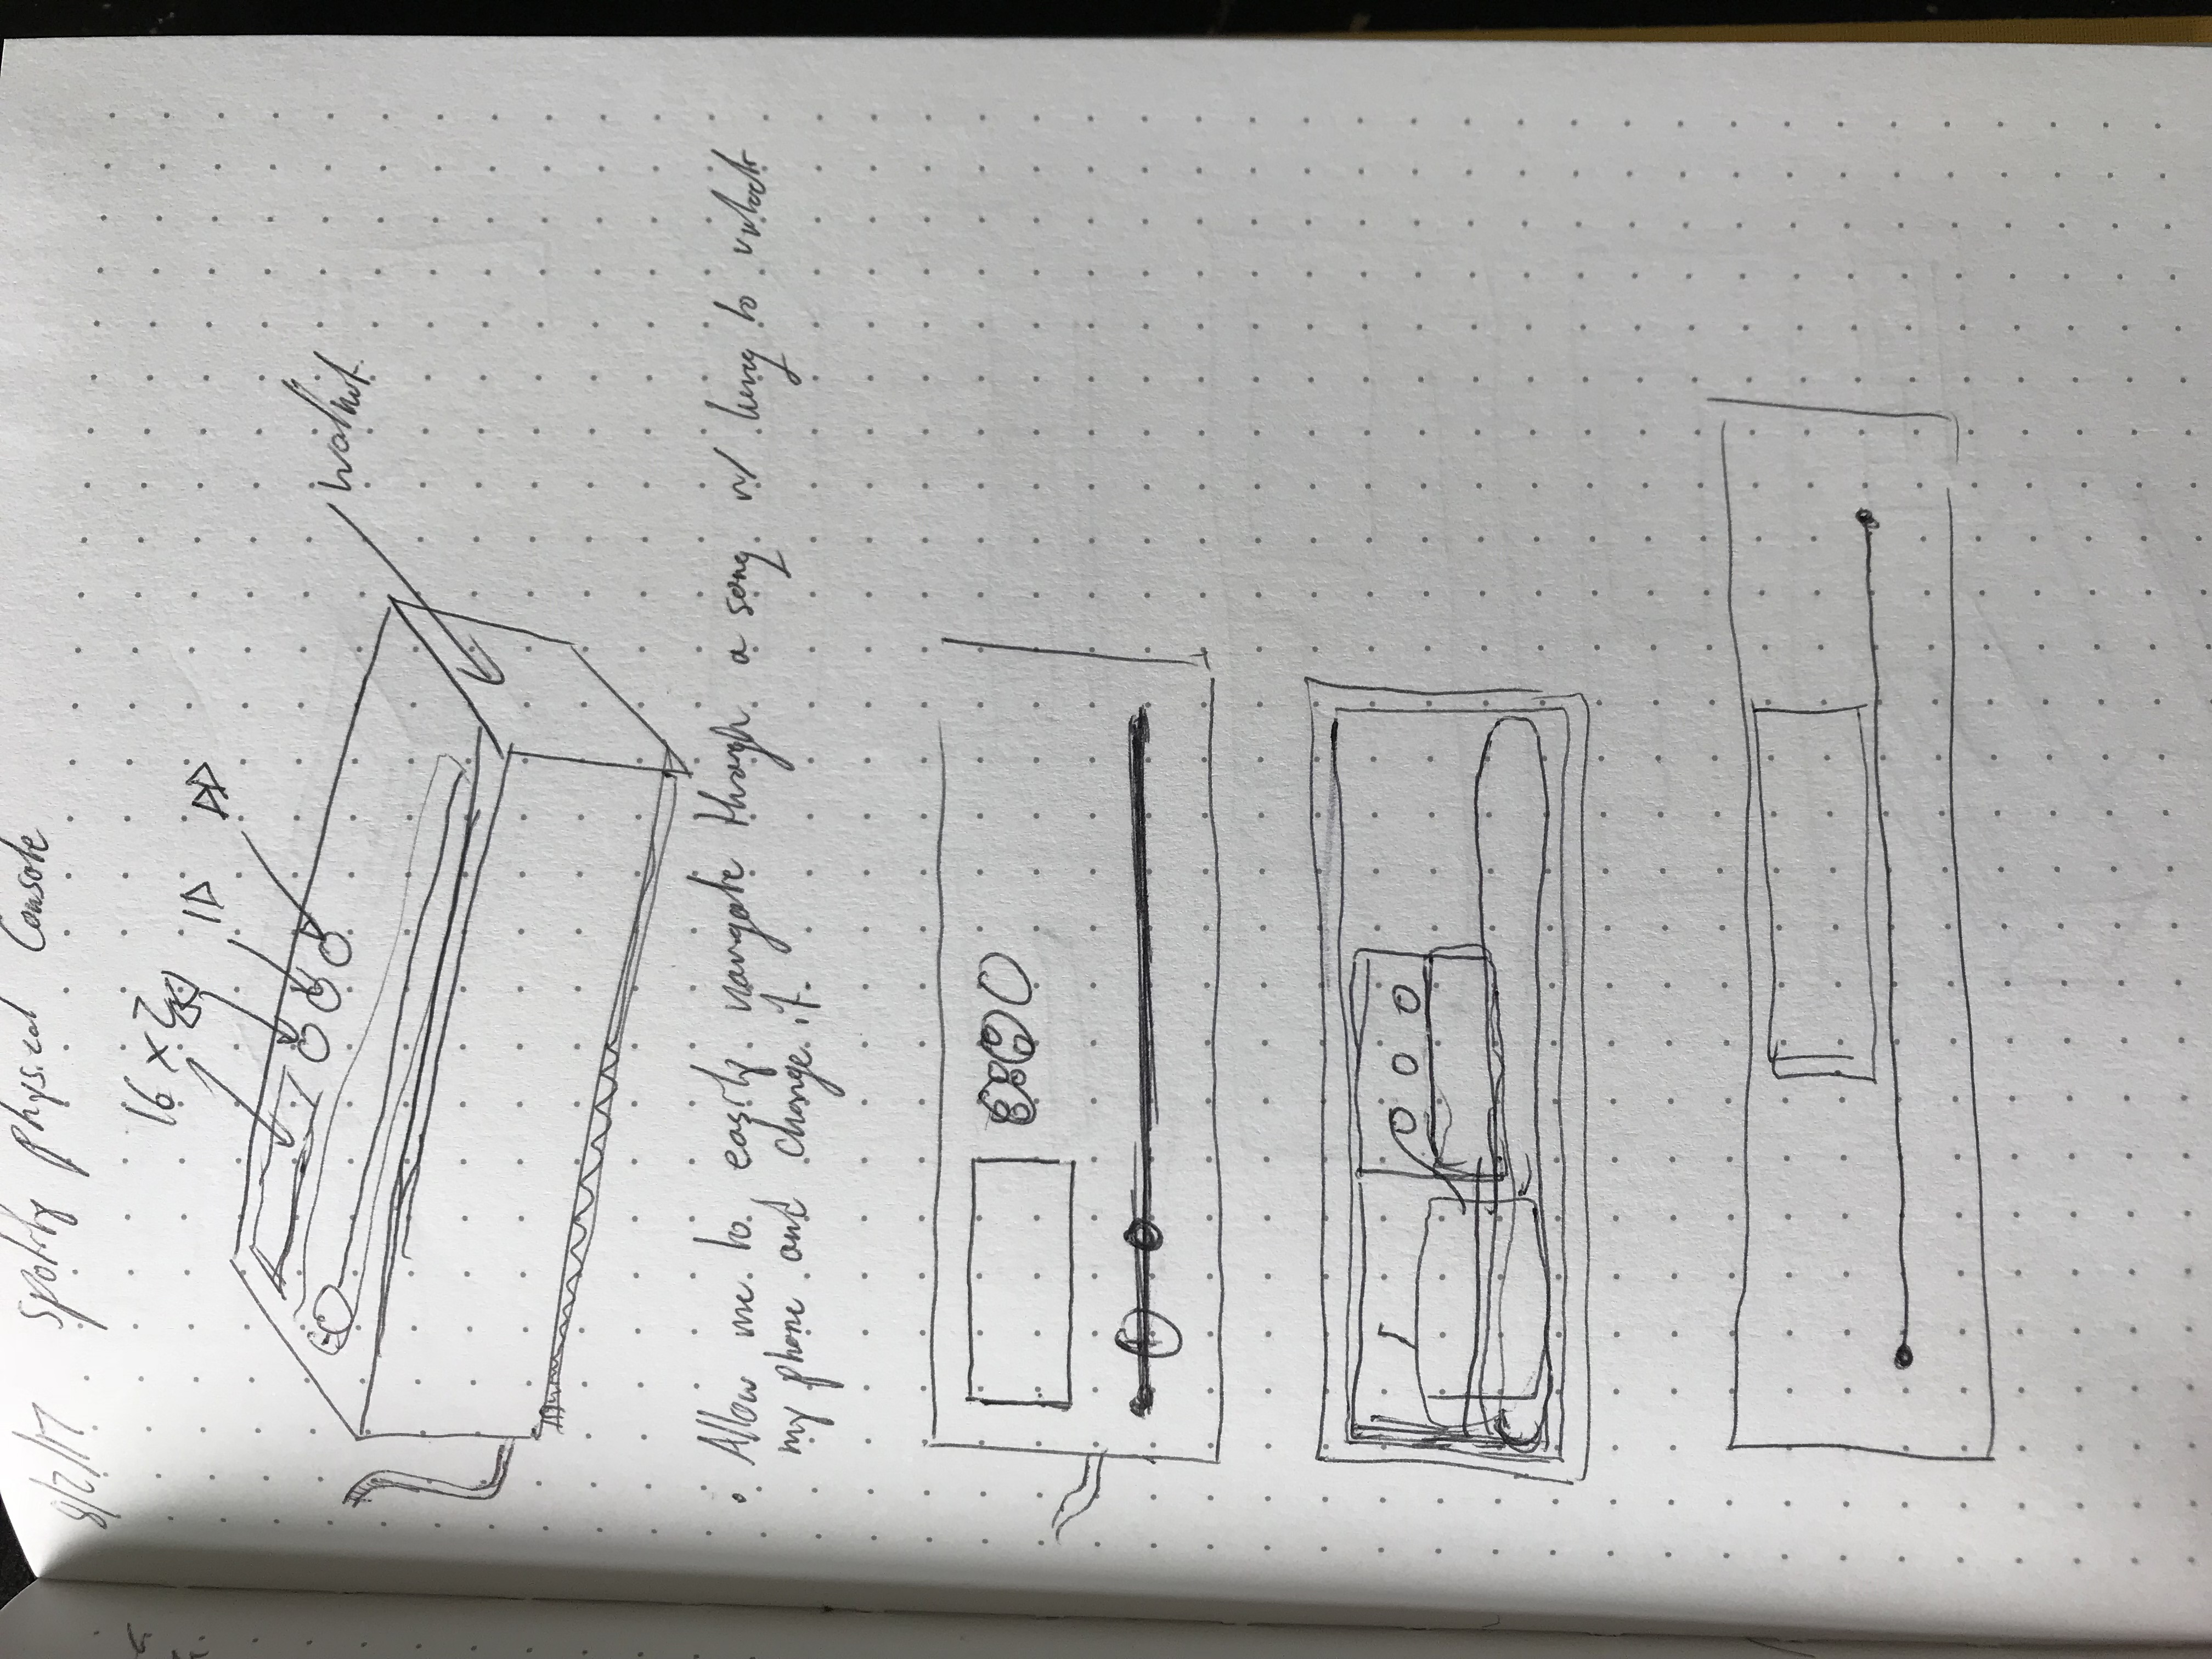 8/2/17 Spotify physical Console
16 x 2
walnut
• Allow me to easily navigate though a song w/ to unlock
my phone and change it.